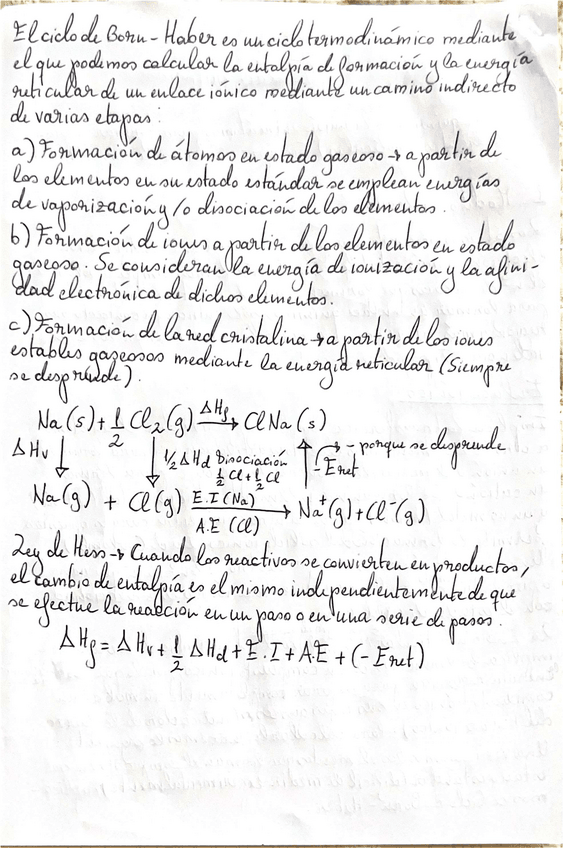 El ciclo de Born-Haber es un ciclo termodinámico mediante
el que podemos calcular la entalpía de formación y la energía
reticular de un enlace iónico mediante un camino indirecto
de varias etapas:
a) Formación de átomos en estado gaseoso → a partir de
los elementos en su estado estándar se emplean energías
de vaporización y/o disociación de los elementos.
b) Formación de iones a partir de los elementos en estado
gaseoso. Se consideran la energía de ionización y la afini-
dad electrónica de dichos elementos.
c) Formación de la red cristalina → a partir de los iones
estables gaseosos mediante la energía reticular (Siempre
se desprende).
Na(s) + 1/2 Cl₂(g) ΔHf → ClNa(s)
ΔHv ↓ ↓ 1/2 ΔHd Disociación ↑ - porque se desprende
1/2 Cl + 1/2 Cl -Eret
Na(g) + Cl(g) E.I (Na) → Na⁺(g) + Cl⁻(g)
A.E (Cl)
Ley de Hess → Cuando los reactivos se convierten en productos,
el cambio de entalpía es el mismo independientemente de que
se efectue la reacción en un paso o en una serie de pasos.
ΔHf = ΔHv + 1/2 ΔHd + E.I + A.E + (- Eret)